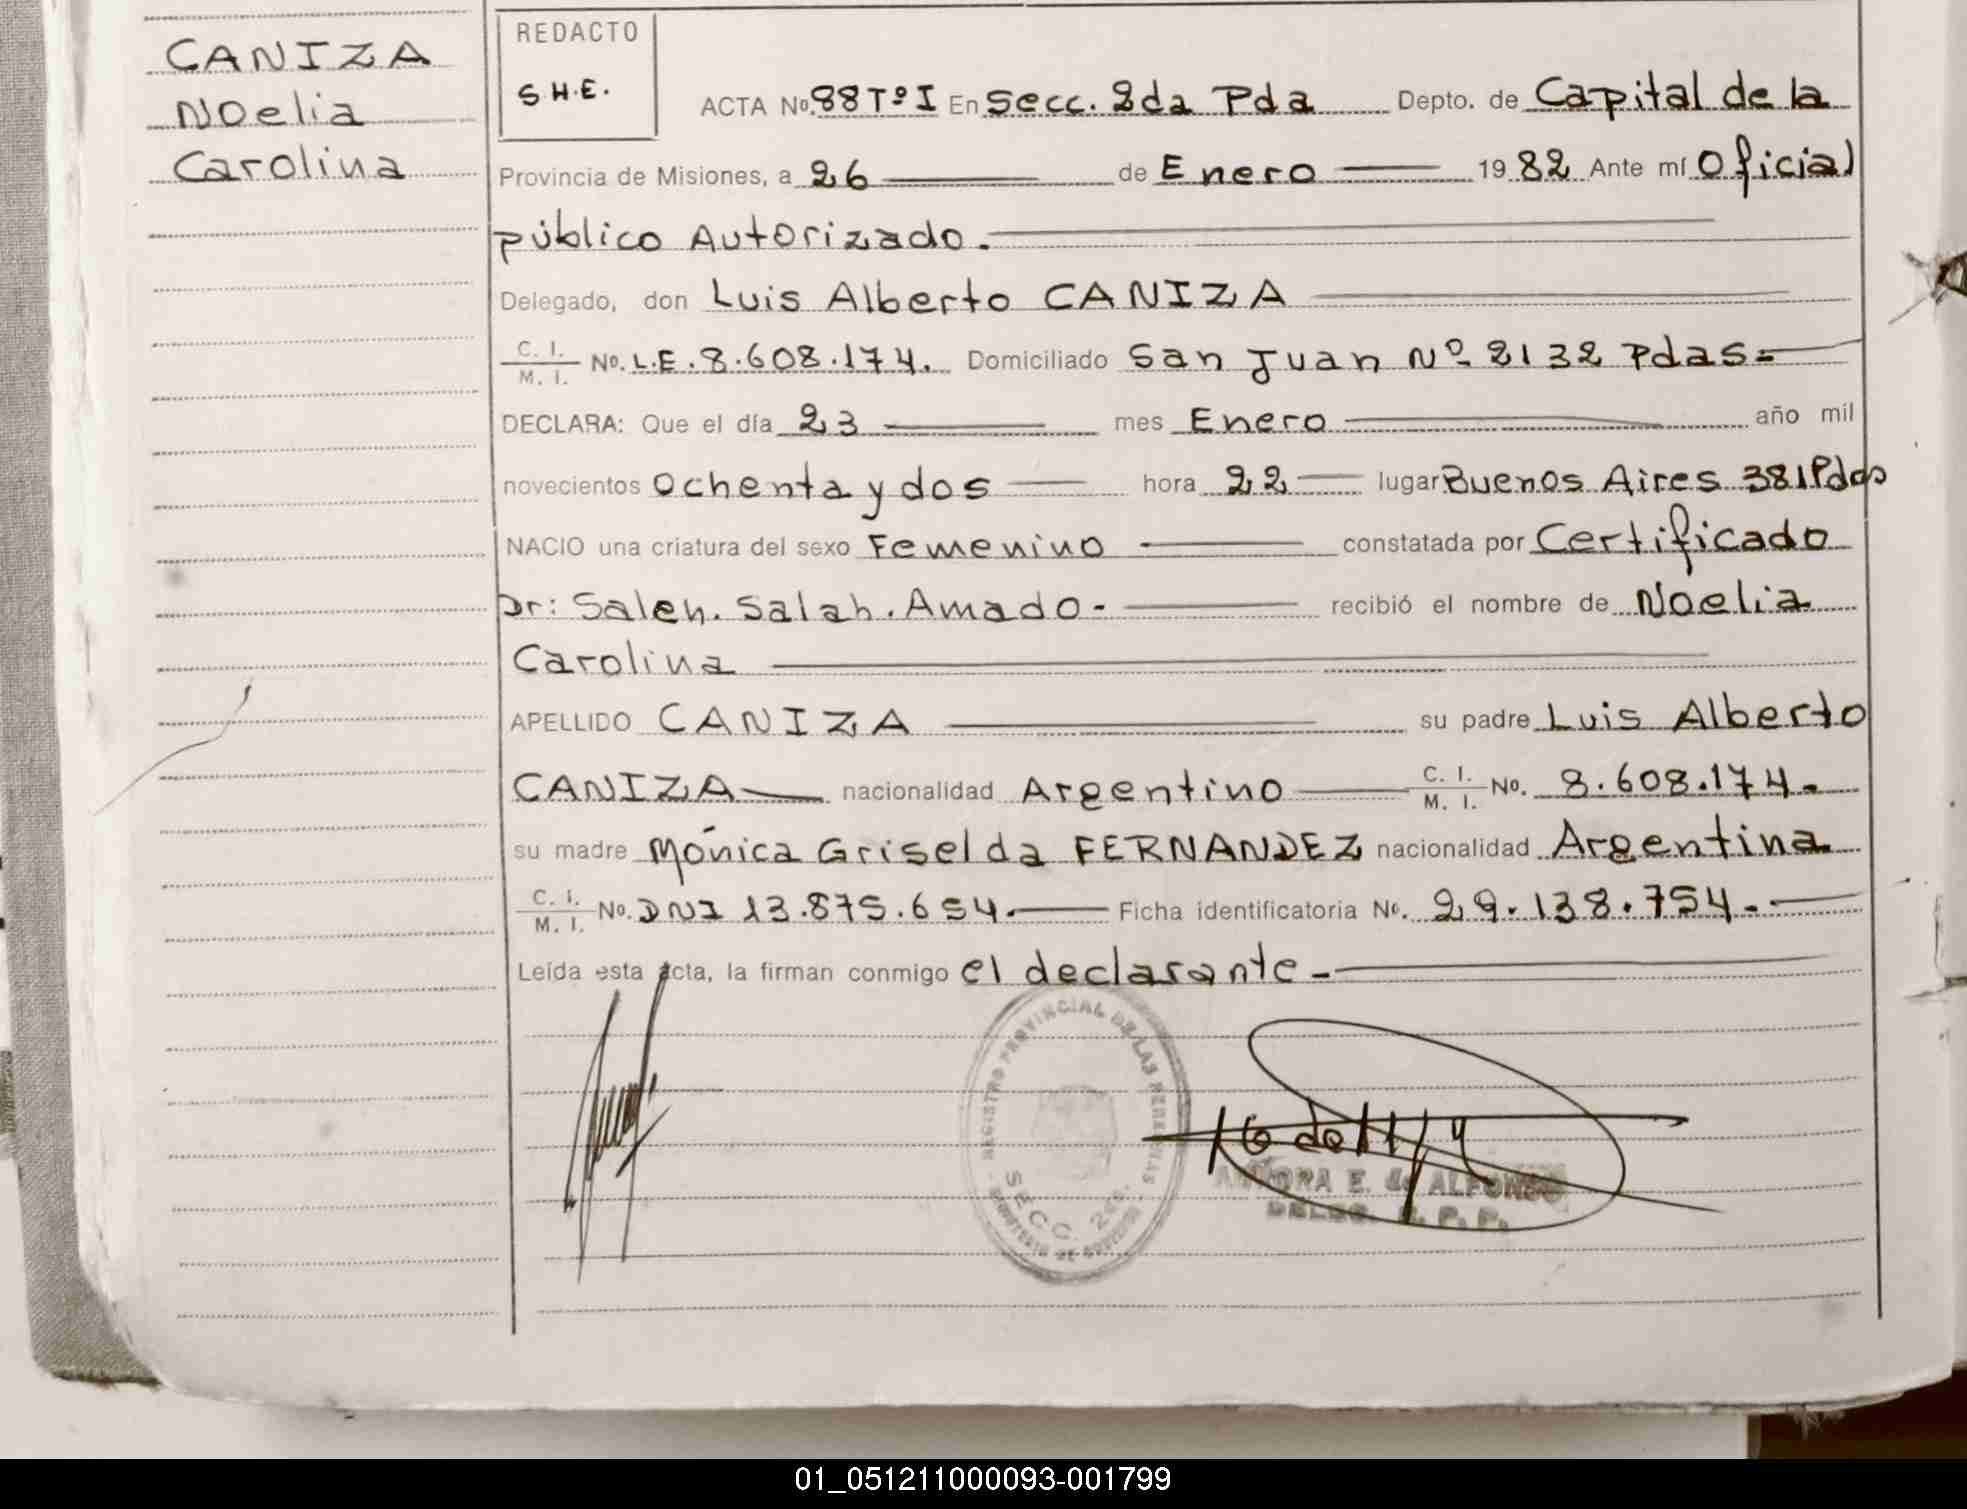 CANIZA
Noelia
Carolina
REDACTO
S.H.E.
ACTA No. 88 Tº I En Secc. 2da Pda Depto. de Capital de la
Provincia de Misiones, a 26 de Enero 1982 Ante mí Oficial
público Autorizado.
Delegado, don Luis Alberto CANIZA
C. I. / M. I. No. L.E. 8.608.174. Domiciliado San Juan Nº 2132 Pdas=
DECLARA: Que el día 23 mes Enero año mil
novecientos Ochenta y dos hora 22 lugar Buenos Aires 381 Pdas
NACIO una criatura del sexo Femenino constatada por Certificado
Dr: Saleh. Salah. Amado. recibió el nombre de Noelia
Carolina
APELLIDO CANIZA su padre Luis Alberto
CANIZA nacionalidad Argentino C. I. / M. I. No. 8.608.174.
su madre Mónica Griselda FERNANDEZ nacionalidad Argentina
C. I. / M. I. No. DNI 13.875.654. Ficha identificatoria No. 29.138.754.
Leída esta acta, la firman conmigo el declarante.
REGISTRO PROVINCIAL DE LAS PERSONAS
SECC. 2da.
E. de ALFONSO
01_051211000093-001799